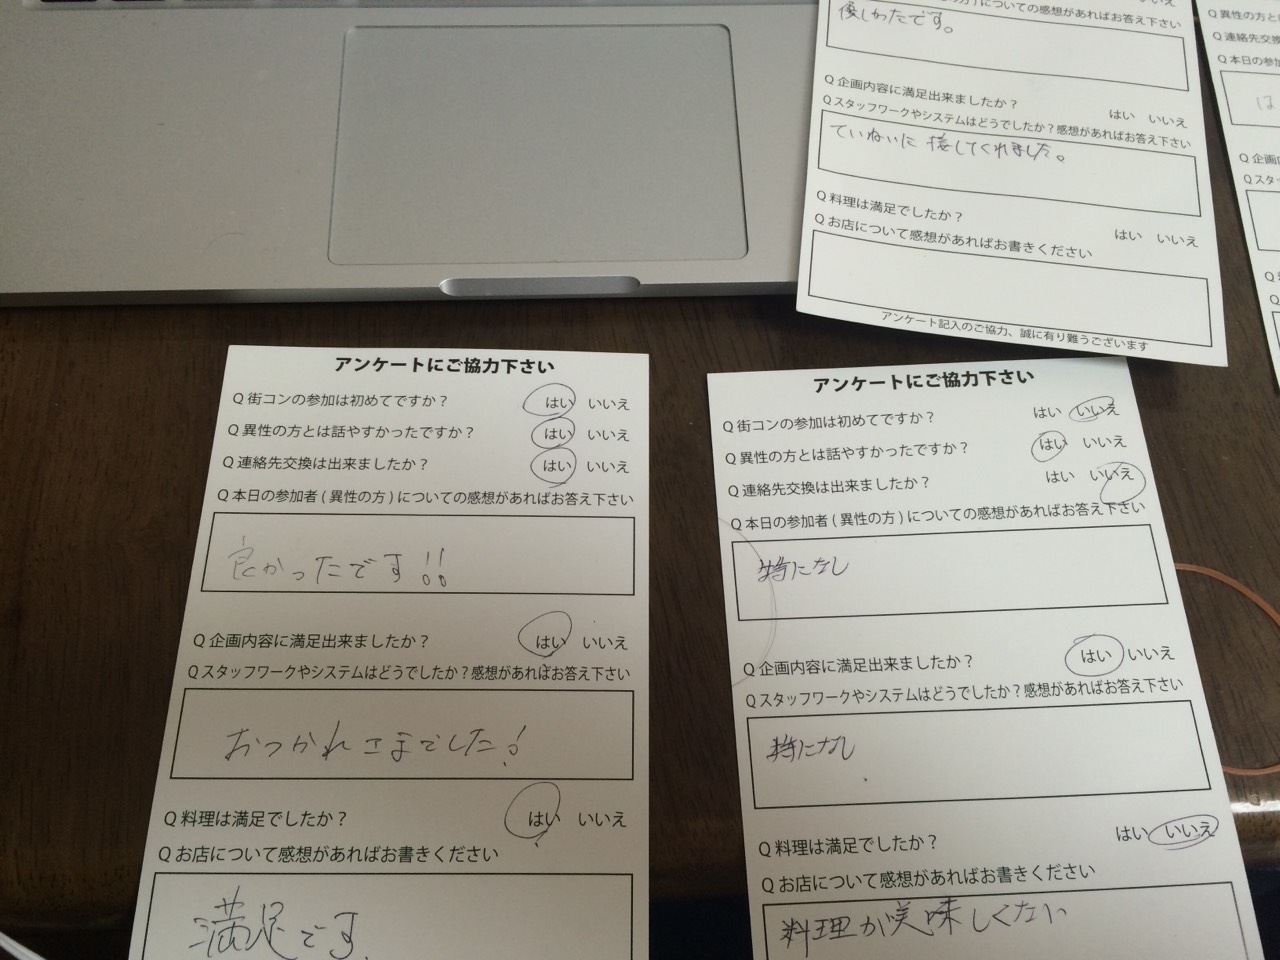 の方)についての感想があればお答え下さい
優しかったです。
Q 企画内容に満足出来ましたか?
はい いいえ
Q スタッフワークやシステムはどうでしたか?感想があればお答え下さい
ていねいに接してくれました。
Q 料理は満足でしたか?
はい いいえ
Q お店について感想があればお書きください
アンケート記入のご協力、誠に有り難うございます
Q 異性の方と
Q 連絡先交換
Q 本日の参加
は
Q 企画
Q スタ
アンケートにご協力下さい
Q 街コンの参加は初めてですか? はい いいえ
Q 異性の方とは話やすかったですか? はい いいえ
Q 連絡先交換は出来ましたか? はい いいえ
Q 本日の参加者(異性の方)についての感想があればお答え下さい
良かったです!!
Q 企画内容に満足出来ましたか? はい いいえ
Q スタッフワークやシステムはどうでしたか?感想があればお答え下さい
おつかれさまでした!
Q 料理は満足でしたか? はい いいえ
Q お店について感想があればお書きください
満足です
アンケートにご協力下さい
Q 街コンの参加は初めてですか? はい いいえ
Q 異性の方とは話やすかったですか? はい いいえ
Q 連絡先交換は出来ましたか? はい いいえ
Q 本日の参加者(異性の方)についての感想があればお答え下さい
特になし
Q 企画内容に満足出来ましたか? はい いいえ
Q スタッフワークやシステムはどうでしたか?感想があればお答え下さい
特になし
Q 料理は満足でしたか? はい いいえ
Q お店について感想があればお書きください
料理が美味しくない